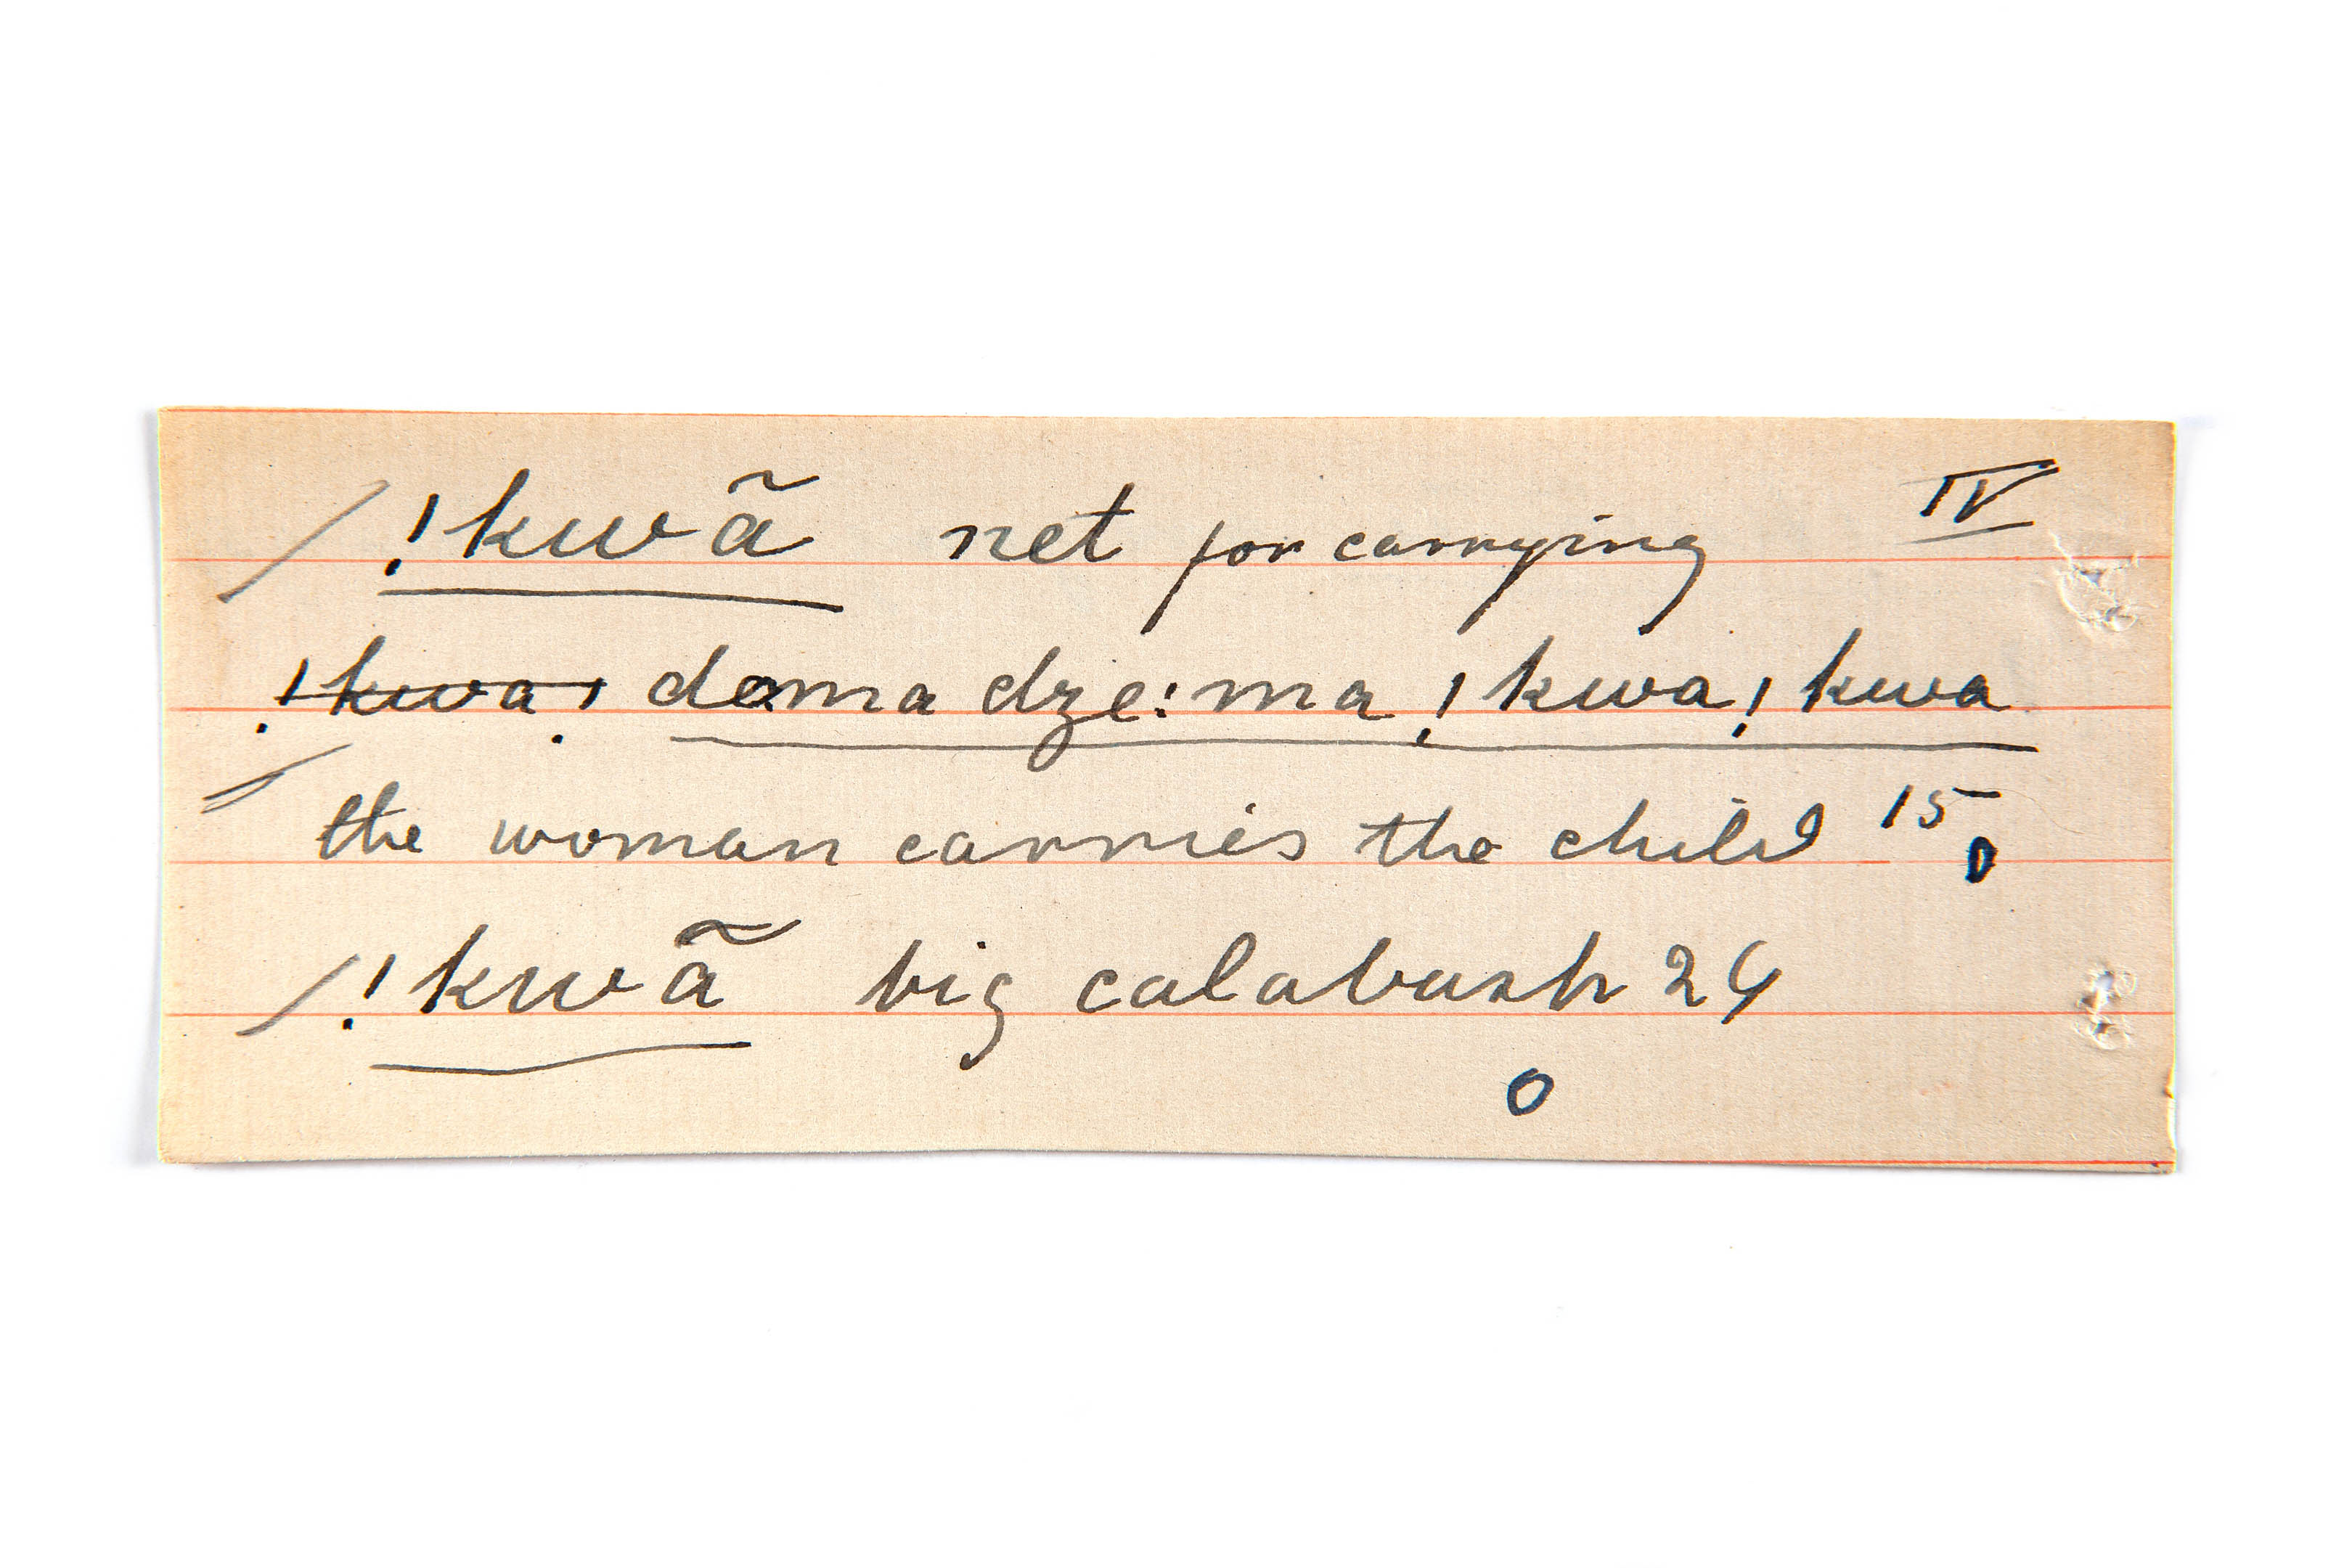 / !kwã net for carrying IV
!kwa! dama dze:ma !kwa!kwa
the woman carries the child 15
/ !kwã big calabash 24
o